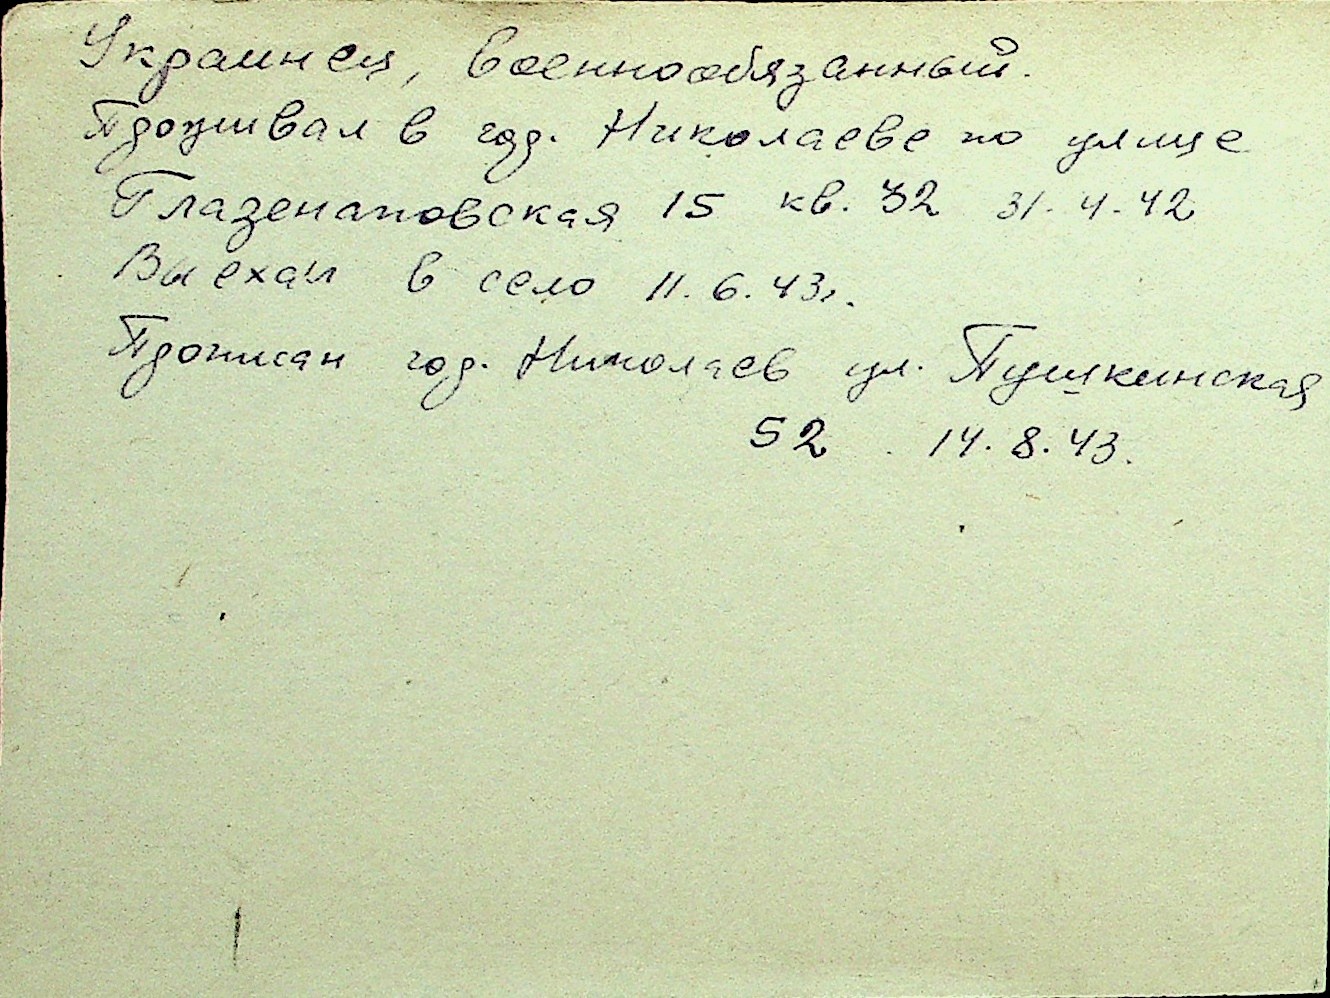 Украинец, военнообязанный.
Проживал в гор. Николаеве по улице
Глазенаповская 15 кв. 32 31.4.42
Выехал в село 11.6.43г.
Прописан гор. Николаев ул. Пушкинская
52 14.8.43.